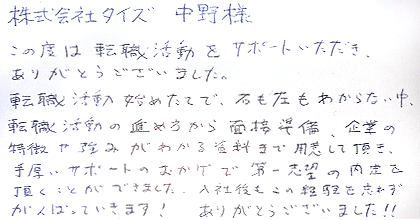 株式会社タイズ 中野様
この度は転職活動をサポートいただき、
ありがとうございました。
転職活動始めたてで、右も左もわからない中、
転職活動の進め方から面接準備、企業の
特徴や強みがわかる資料まで用意して頂き、
手厚いサポートのおかげで第一志望の内定を
頂くことができました。入社後もこの経験を忘れず
がんばっていきます! ありがとうございました!!